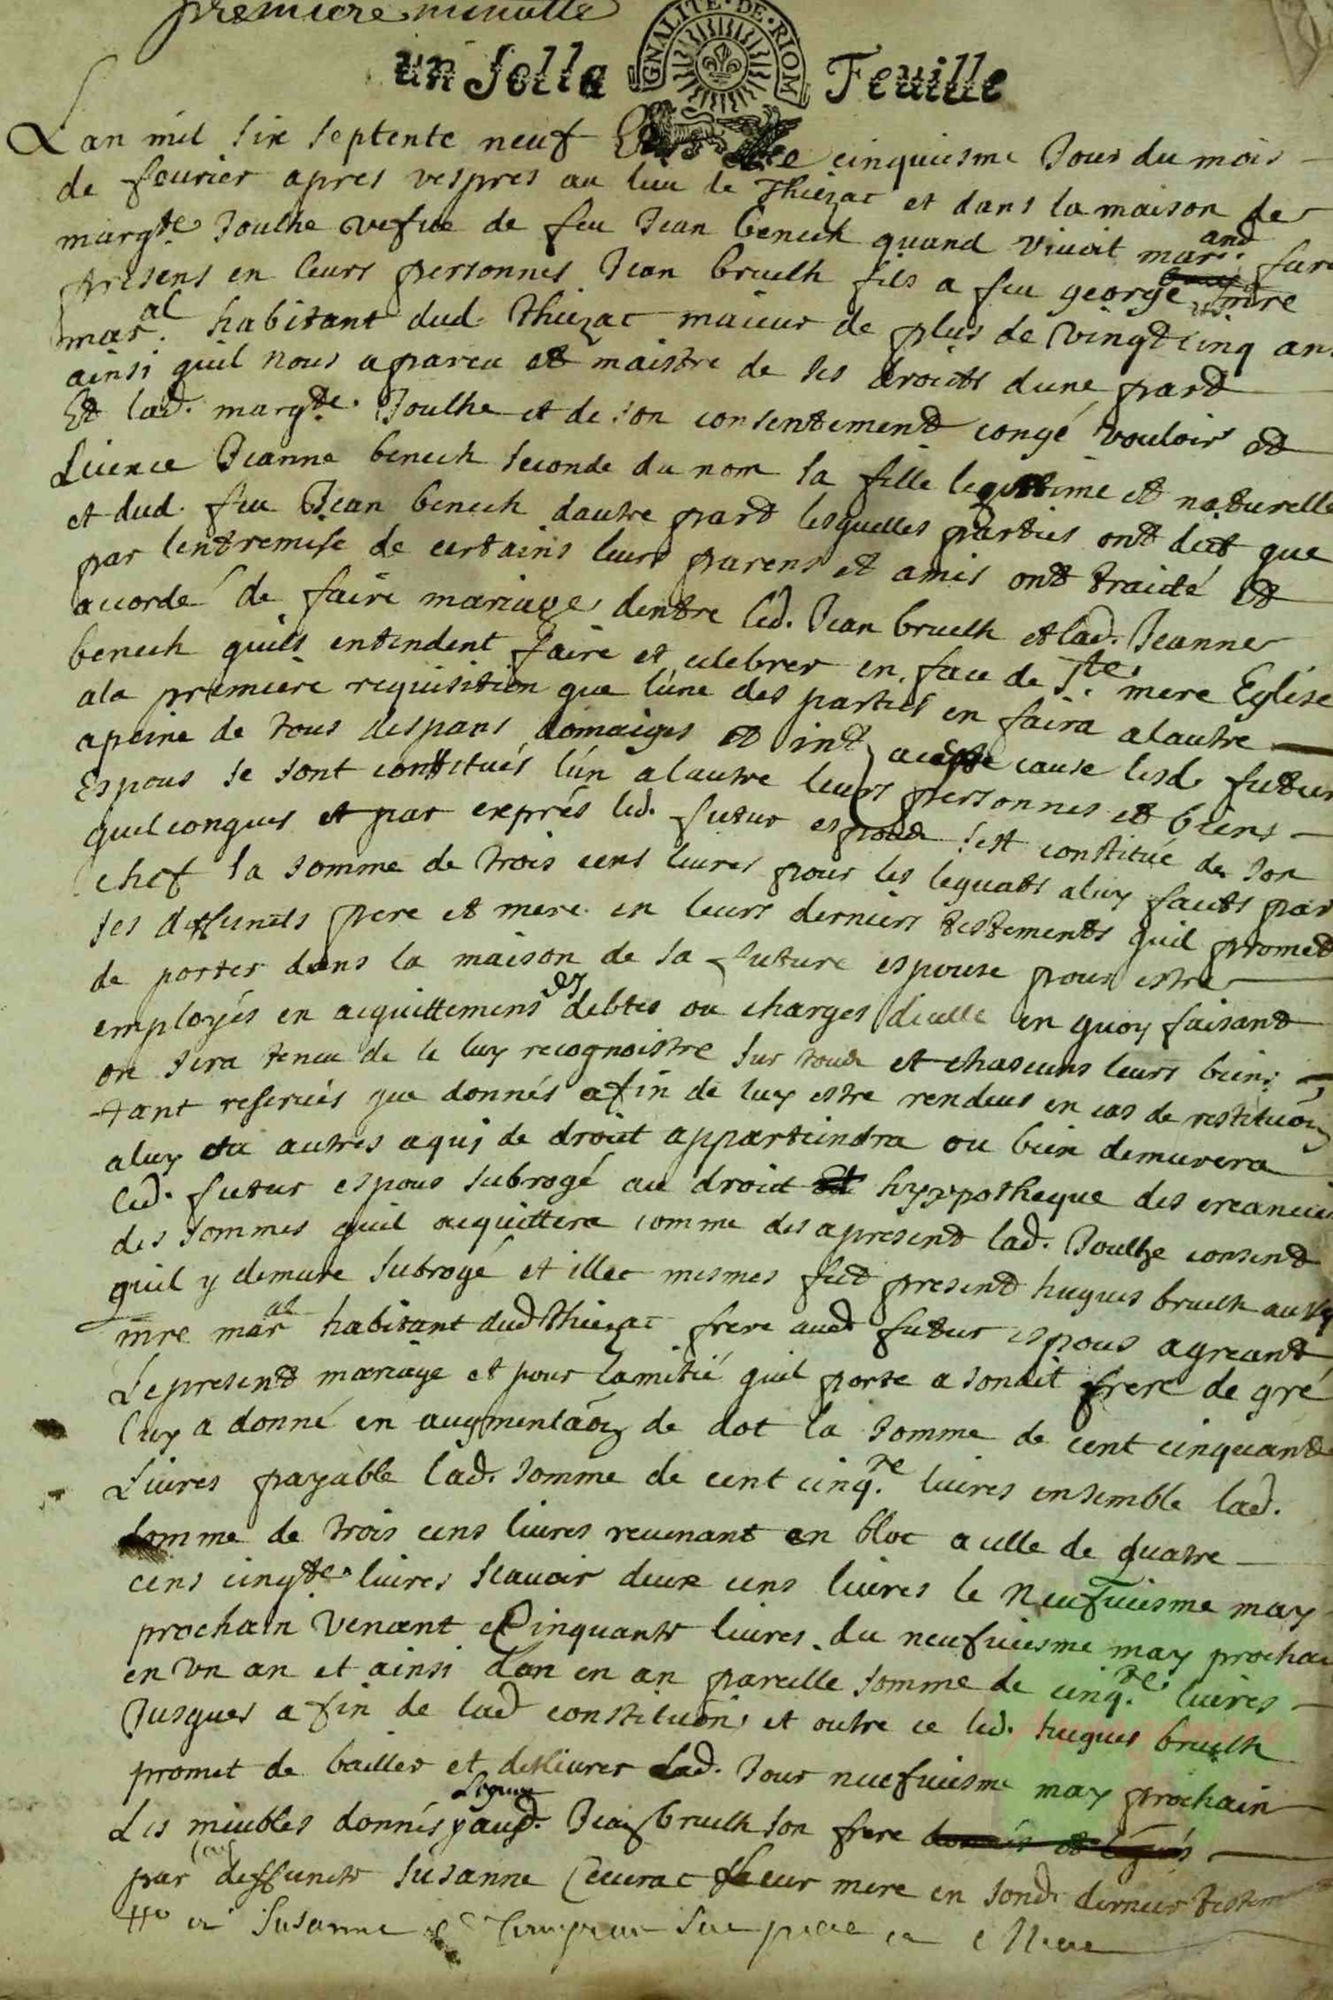 premiere minutte
GNALITE·DE·RIOM
un solla Feuille
Lan mil six septente neuf Et le cinquiesme Jour du mois
de feurier apres vespres au lieu de Thiezac et dans la maison de
margte. Joulhe vefve de feu Jean benech quand vivoit marand.
presens en leurs personnes Jean bruelh fils a feu george mre
maral. habitant dud. Thiezac maieur de plus de vingt cinq ans
ainsi quil nous apareu et maistre de ses droicts dune part
Et lad. margte. Joulhe et de son consentement congé vouloir et
Licence Jeanne benech seconde du nom sa fille legitime et naturelle
et dud. feu Jean benech dautre part lesquelles parties ont dict que
par lentremise de certains leurs parens et amis ont traicté et
accordé de faire mariage dentre led. Jean bruelh et lad. Jeanne
benech quils entendent faire et celebrer en face de Ste. mere Eglise
ala premiere requisition que lune des parties en faira alautre
apeine de tous despans domaiges et int acceste cause lesd. futurs
Espous se sont constitués lun alautre leurs personnes et biens
quelconques et par exprés led. futur espous sest constitué de son
chef la somme de trois cens livres pour les leguats aluy faicts par
ses deffuncts pere et mere en leurs derniers testements quil promet
de porter dans la maison de sa future espouse pour estre
employés en acquittemens des debtes ou charges dicelle en quoy faisant
on sera tenu de le luy recognoistre sur tous et chascuns leurs biens
tant reservés que donnés afin de luy estre rendeus en cas de restituõn
aluy ou autres aqui de droict appartiendra ou bien demurera
led. futur espous subrogé au droict et hyppotheque des creanciers
des sommes quil acquittera comme des apresent lad. Joulhe consent
quil y demure subrogé et illec mesmes fut present hugues bruelh aussy
mre maral habitant dud Thiezac frere aud futur espous agreant
Le present mariage et pour lamitié quil porte a sondit frere de gré
luy a donné en augmentaõn de dot la somme de cent cinquante
Livres payable lad. somme de cent cinqte. livres ensemble lad.
somme de trois cens livres revenant en bloc a celle de quatre
cens cinqte. livres scavoir deux cens livres le neufviesme may
prochain venant et Cinquante livres du neufviesme may prochain
en un an et ainsi dan en an pareille somme de cinqte. livres
Jusques a fin de lad constitution et outre ce led. hugues bruelh
promet de bailler et delivrer lad. Jour neufviesme may prochain
Les meubles donnés legués aud. Jean bruelh son frere
par deffuncte Susanne Ceverac leur mere en sond. dernier testem